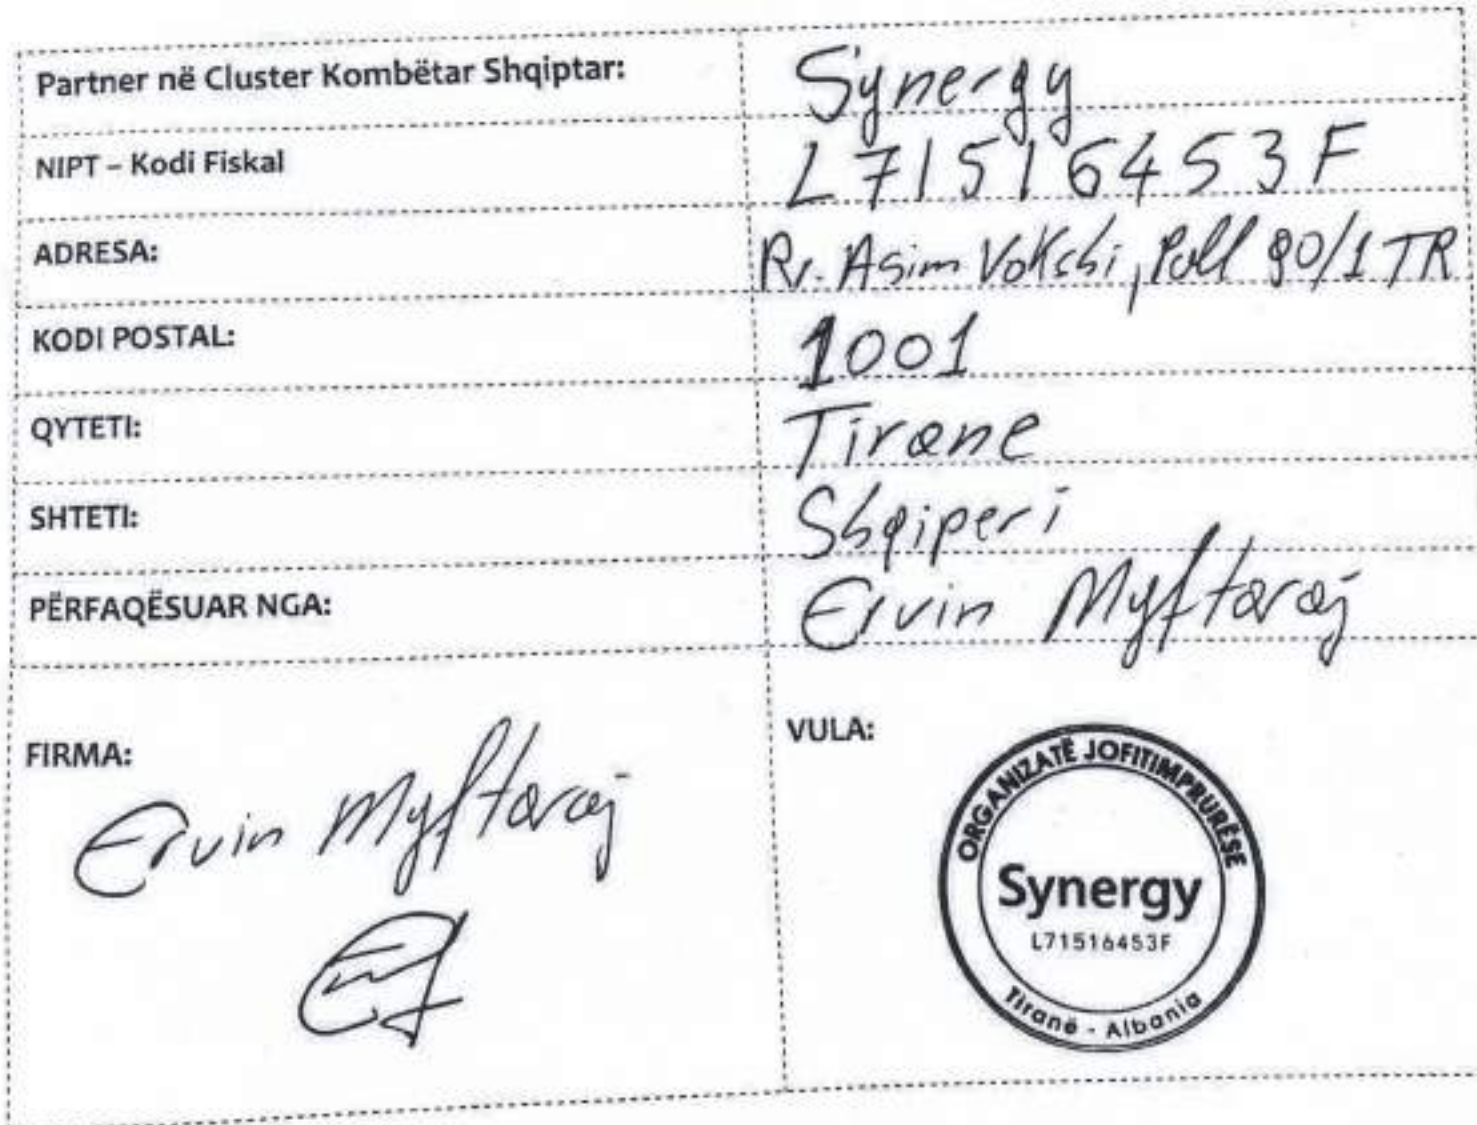 Partner në Cluster Kombëtar Shqiptar: Synergy
NIPT – Kodi Fiskal L71516453F
ADRESA: Rr. Asim Vokshi, Pall 90/1 TR
KODI POSTAL: 1001
QYTETI: Tirane
SHTETI: Shqiperi
PËRFAQËSUAR NGA: Ervin Myftaraj
FIRMA: Ervin Myftaraj
VULA:
ORGANIZATË JOFITIMPRURËSE
Synergy
L71516453F
Tiranë - Albania